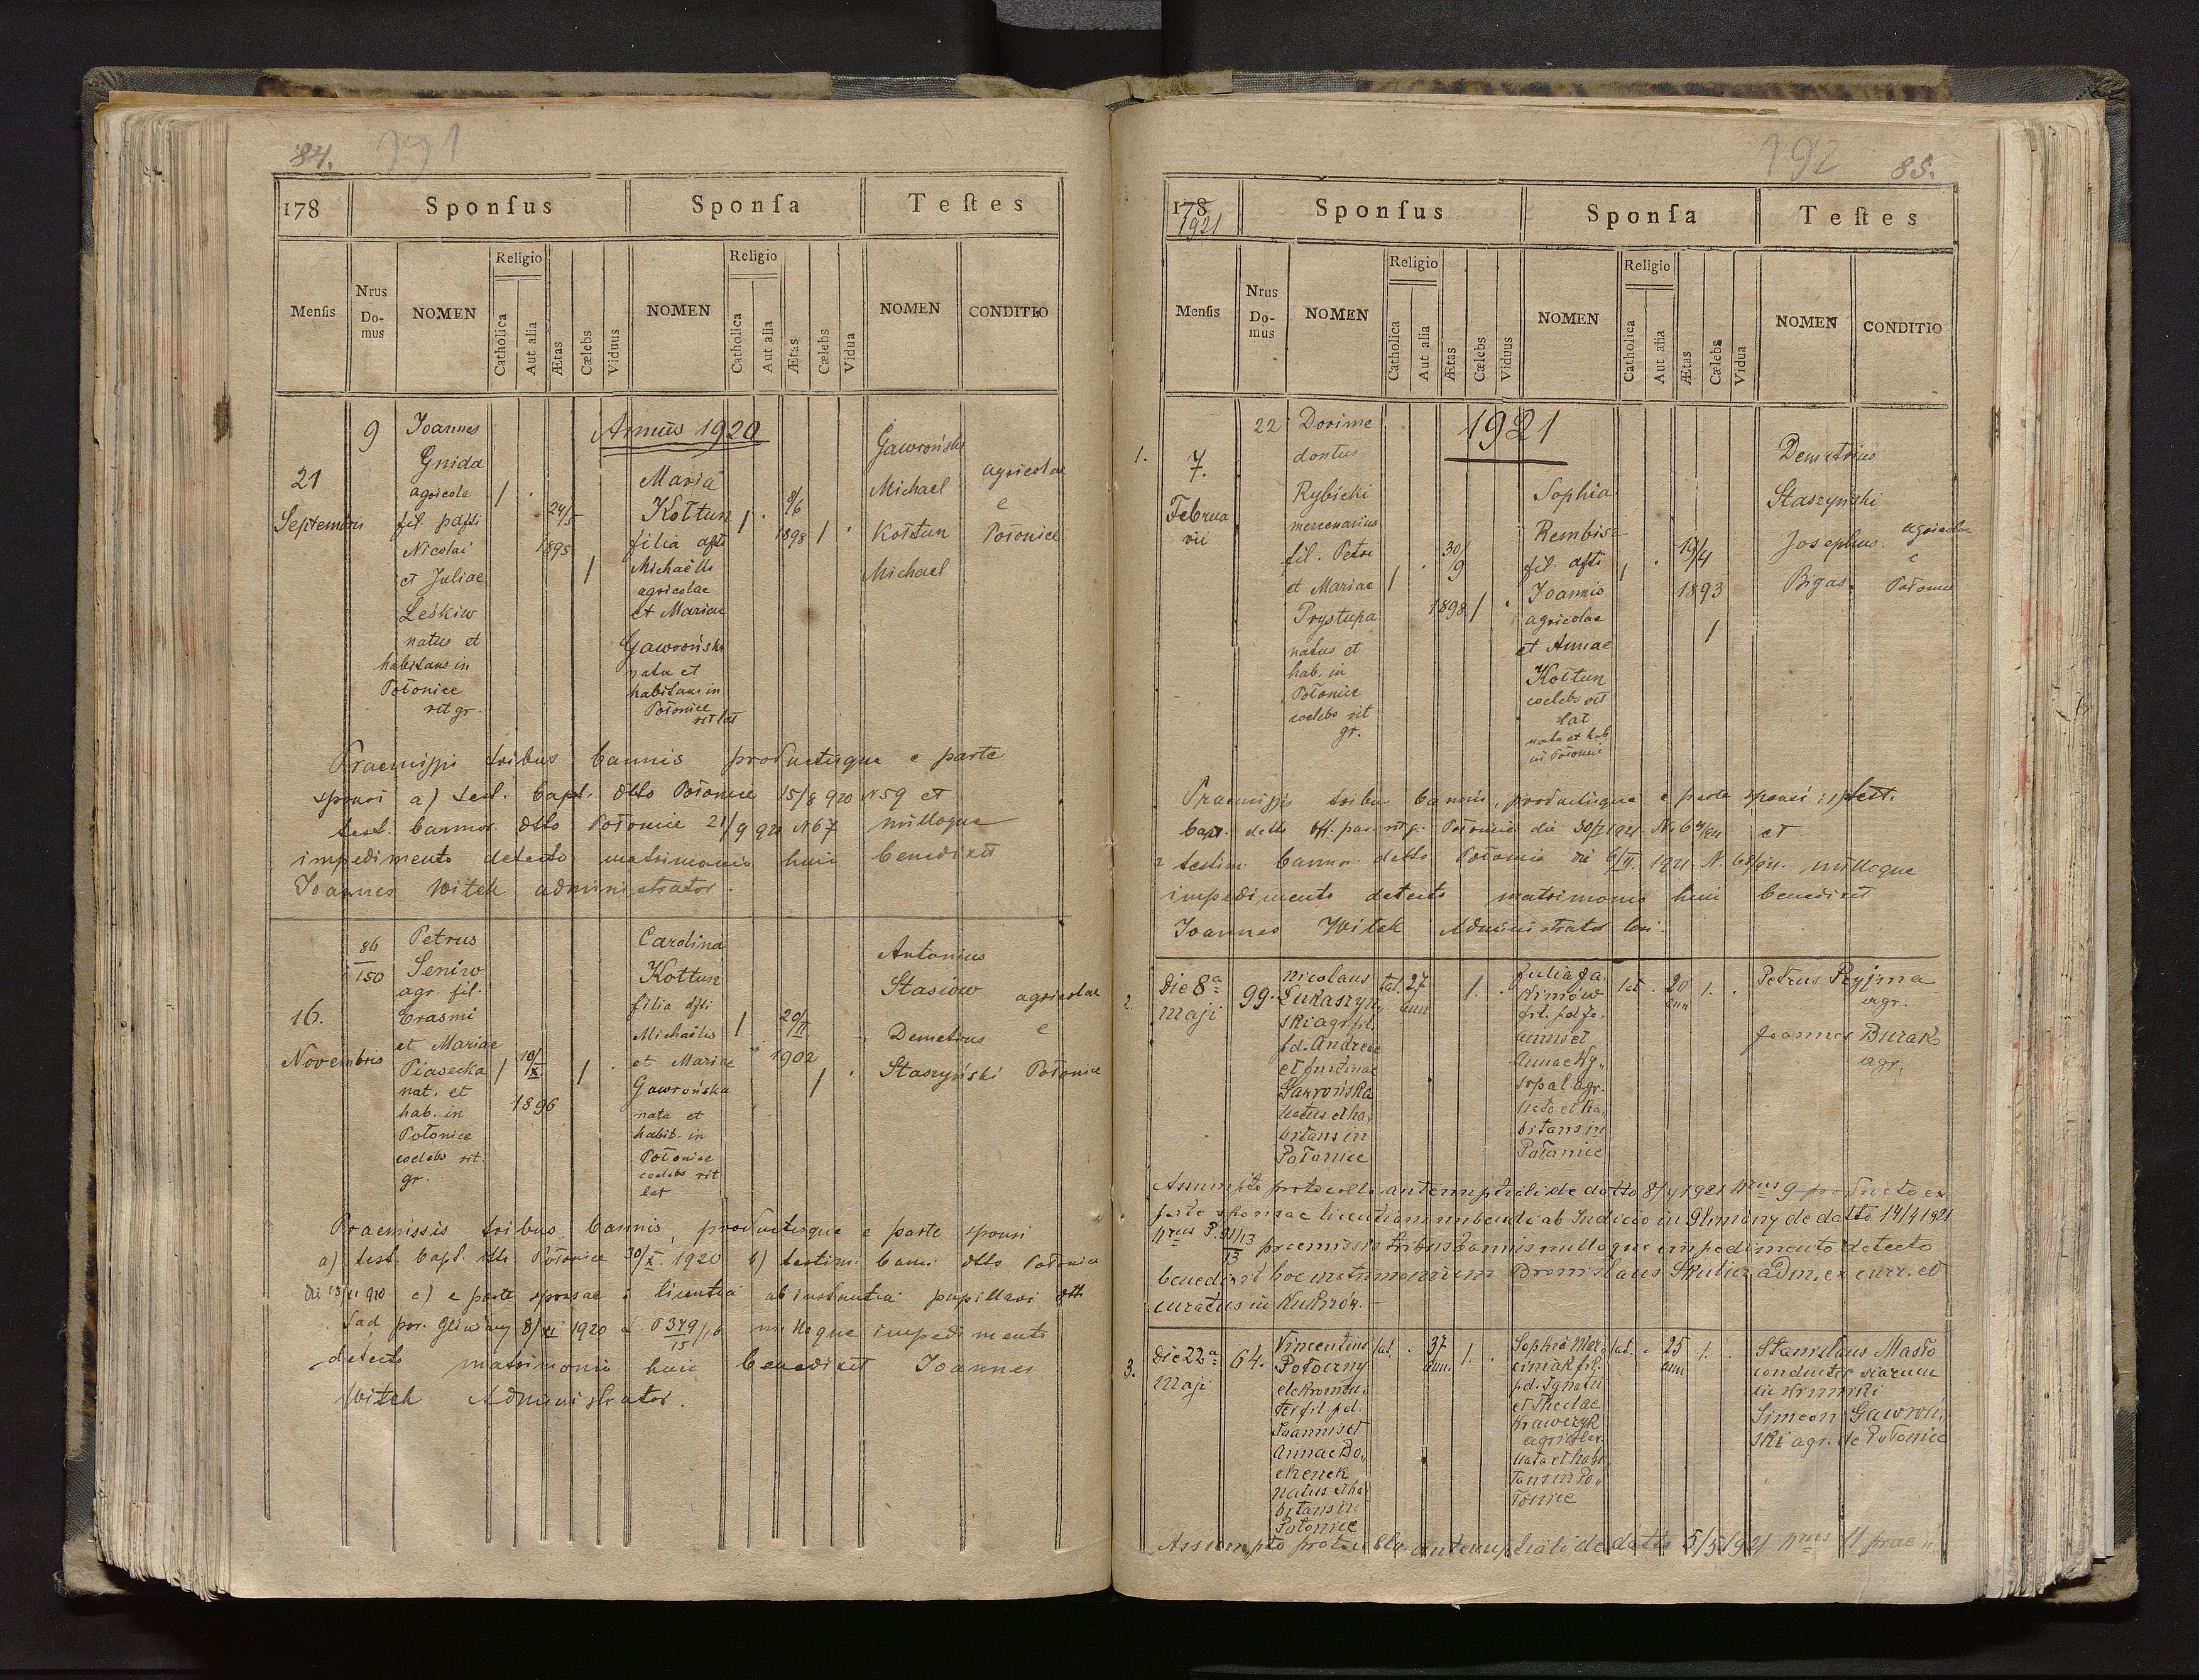 84. 191
178 Sponſus Sponſa Teſtes
Menſis Nrus Do-mus NOMEN Religio Catholica Aut alia Ætas Cælebs Viduus NOMEN Religio Catholica Aut alia Ætas Cælebs Vidua NOMEN CONDITIO
Annus 1920
21
Septembris
9
Joannes
Gnida
agricola
fil. pasti
Nicolai
et Juliae
Leśkiw
natus et
habitans in
Połonice
rit gr.
/
24/5
1895
/
Maria
Kołtun
filia
Michaëlis
agricolae
et Mariae
Gawrońska
nata et
habitans in
Połonice
rit lat
/
8/6
1898 /
Gawroński
Michael
Kołtun
Michael
agricolae
e
Połonice
Praemissis tribus bannis productisque e parte
sponsi a) test. bapt. dtto Połonice 15/8 920 N 59 et
test. bannor. dtto Połonice 21/9 920 N 67 nulloque
impedimento detecto matrimonio huic benedixit
Joannes Witek administrator.
16.
Novembris
86
150
Petrus
Seniw
agr. fil.
Erasmi
et Mariae
Piasecka
nat. et
hab. in
Połonice
coelebs rit.
gr.
/
10/X
1896
/
Carolina
Kołtun
filia
Michaëlis
et Mariae
Gawrońska
nata et
habit. in
Połonice
coelebs rit
lat
/
20/II
1902
/
Antonius
Stasiów
Demetrius
Staszyński
agricolae
e
Połonice
Praemissis tribus bannis, productisque e parte sponsi
a) test. bapt. dtto Połonice 30/X. 1920 b) testim. bann. dtto Połonice
c) e parte sponsae: licentia ab instantia pupillari dtto
Sąd pow. Gliniany 8/XI 1920 nulloque impedimento
detecto matrimonio huic benedixit Joannes
Witek Administrator.
192 85.
178 Sponſus Sponſa Teſtes
1921
Menſis Nrus Do-mus NOMEN Religio Catholica Aut alia Ætas Cælebs Viduus NOMEN Religio Catholica Aut alia Ætas Cælebs Vidua NOMEN CONDITIO
1921
1.
7.
Februa
rii
22
Dorime
dontus
Rybicki
mercenarius
fil. Petri
et Mariae
Prystupa
natus et
hab. in
Połonice
coelebs rit
gr.
/
30/9
1898 /
Sophia
Rembisz
fil.
Joannis
agricolae
et Annae
Kołtun
coelebs rit
lat
nata et hab
in Połonice
/
19/4
1893
/
Demetrius
Staszyński
Josephus
Bigas
agricolae
e
Połonice
Praemissis tribus bannis, productisque e parte sponsi: 1) test.
bapt. dtto off. par. rit. g. Połonice die 30/I 1921 et
2 testim. bannor. detto Połonice die 6/II. 1921 nulloque
impedimento detecto matrimonio huic benedixit
Joannes Witek Administrator loci.
2.
die 8ª
Maji
99.
Nicolaus
Łukaszyń
ski agr. fil.
fd. Andreae
et Justinae
Gawrońska
natus et ha,
bitans in
Połonice
lat. 27
ann
1.
Julia Ja
kimów
fil. fd Jo,
annis et
Annae Wy,
sopal agr.
nata et ha,
bitans in
Połonice
lat. 20
ann
1.
Petrus Pryjma
agr.
Joannes Burak
agr.
Assumpto protocollo antenuptiali de datto 8/4 1921 Nrus 9 producto ex
parte sponsae licentiam nubendi ab Judicio in Gliniany de datto 14/4 1921
Nrus P. 91/13
13 praemissis tribus bannis nulloque impedimento detecto
benedixit hoc matrimonium Bronislaus Skulicz adm. ex curr. et
curatus in Kurzów.
3.
die 22ª
Maji
64.
Vincentius
Potoczny
elektromon,
ter fil pd.
Joannis et
Annae Bo,
chenek
natus et ha
bitans in
Połonice
lat.
37
ann.
1.
Sophia Mar,
ciniak fil.
pd. Ignatii
et Theclae
Krawczyk
agricolar.
nata et habi
tans in Po,
łonice
lat. 25
ann
1.
Stanislaus Masło
conductor viarum
in Winniki
Simeon Gawroń,
ski agr. de Połonice
Assumpto protocollo antenuptiali de datto 5/5 1921 Nrus 11 prae